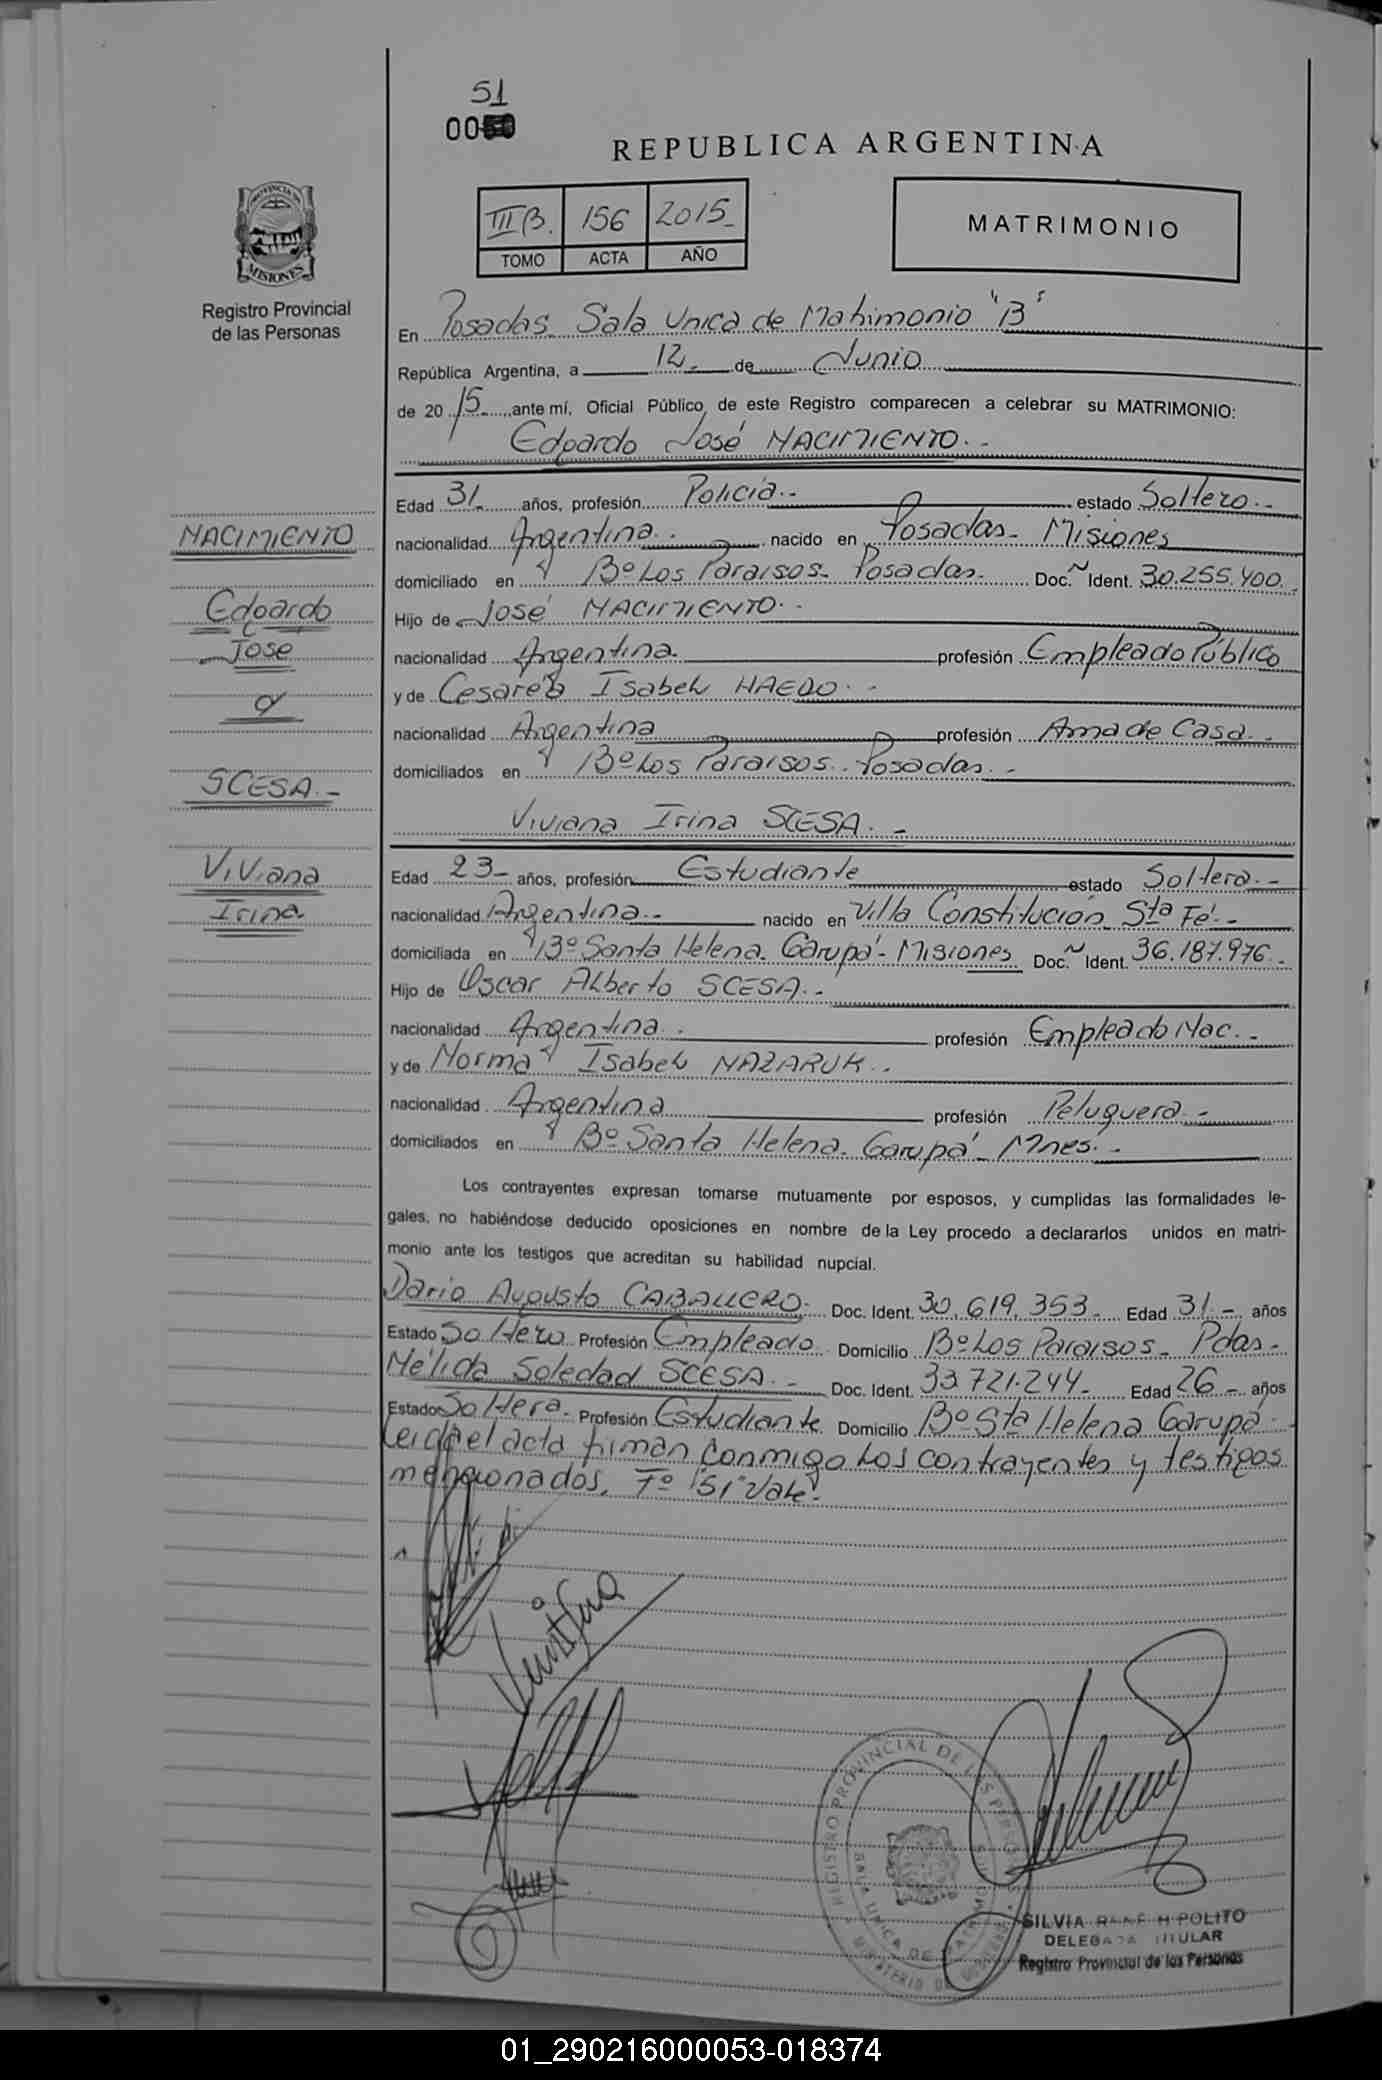 51
00
REPUBLICA ARGENTINA
III B. 156 2015
TOMO ACTA AÑO
MATRIMONIO
PROVINCIA DE MISIONES
Registro Provincial
de las Personas
En Posadas. Sala Unica de Matrimonio "B"
República Argentina, a 12 de Junio
de 2015 ante mí, Oficial Público de este Registro comparecen a celebrar su MATRIMONIO:
Eduardo José NACIMIENTO.-
Edad 31 años, profesión Policía.- estado Soltero.-
nacionalidad Argentina.- nacido en Posadas- Misiones
domiciliado en Bº Los Paraisos- Posadas. Doc. Ident. 30.255.400.
Hijo de José NACIMIENTO.-
nacionalidad Argentina. profesión Empleado Público
y de Cesarea Isabel HAEDO.-
nacionalidad Argentina profesión Ama de Casa.-
domiciliados en Bº Los Paraisos. Posadas.-
Viviana Irina SCESA.-
Edad 23- años, profesión Estudiante estado Soltera.-
nacionalidad Argentina.- nacido en Villa Constitución Sta Fé.-
domiciliada en Bº Santa Helena. Garupá- Misiones Doc. Ident. 36.187.976.-
Hijo de Oscar Alberto SCESA.-
nacionalidad Argentina. profesión Empleado Nac.-
y de Norma Isabel NAZARUK.-
nacionalidad Argentina profesión Peluquera.-
domiciliados en Bº Santa Helena. Garupá- Mnes.-
NACIMIENTO
Eduardo
José
y
SCESA.-
Viviana
Irina
Los contrayentes expresan tomarse mutuamente por esposos, y cumplidas las formalidades le-
gales, no habiéndose deducido oposiciones en nombre de la Ley procedo a declararlos unidos en matri-
monio ante los testigos que acreditan su habilidad nupcial.
Dario Augusto CABALLERO. Doc. Ident. 30.619.353- Edad 31.- años
Estado Soltero Profesión Empleado Domicilio Bº Los Paraisos- Pdas.-
Nélida Soledad SCESA.- Doc. Ident. 33.721.244- Edad 26- años
Estado Soltera- Profesión Estudiante Domicilio Bº Sta Helena Garupá
Leida el acta firman conmigo Los contrayentes y testigos
mencionados. Fº "51" Vale.-
REGISTRO PROVINCIAL DE LAS PERSONAS
SALA UNICA DE MATRIMONIOS
MINISTERIO DE GOBIERNO
SILVIA RENÉ HIPOLITO
DELEGADA TITULAR
Registro Provincial de las Personas
01_290216000053-018374